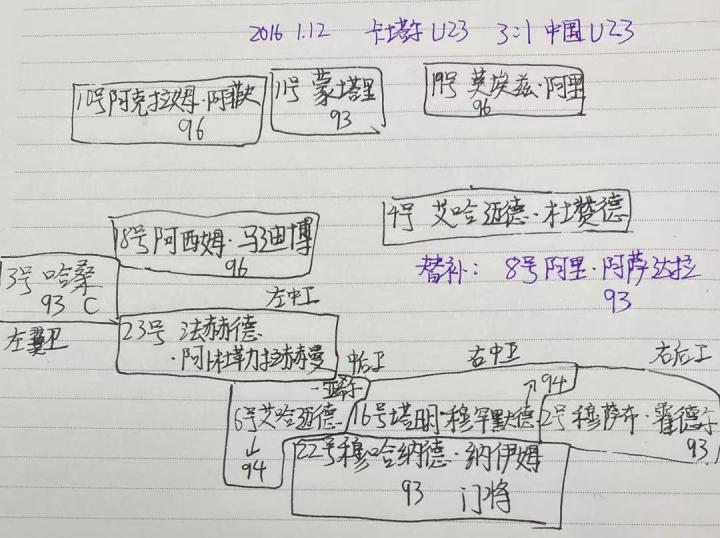 2016 1.12 卡塔尔U23 3:1 中国U23
10号阿克拉姆·阿菲夫
96
11号 蒙塔里
93
19号 莫埃兹·阿里
96
18号 阿西姆·马迪博
96
14号 艾哈迈德·杜赞德
替补: 8号阿里·阿萨达拉
93
3号 哈桑
93 C
左翼卫
左中卫
23号 法赫德
·阿卜杜勒拉赫曼
中后卫
右中卫
右后卫
6号艾哈迈德
↓
94
16号塔明·穆罕默德
↗94
2号穆萨布·霍德尔
93
22号穆哈纳德·纳伊姆
93 门将